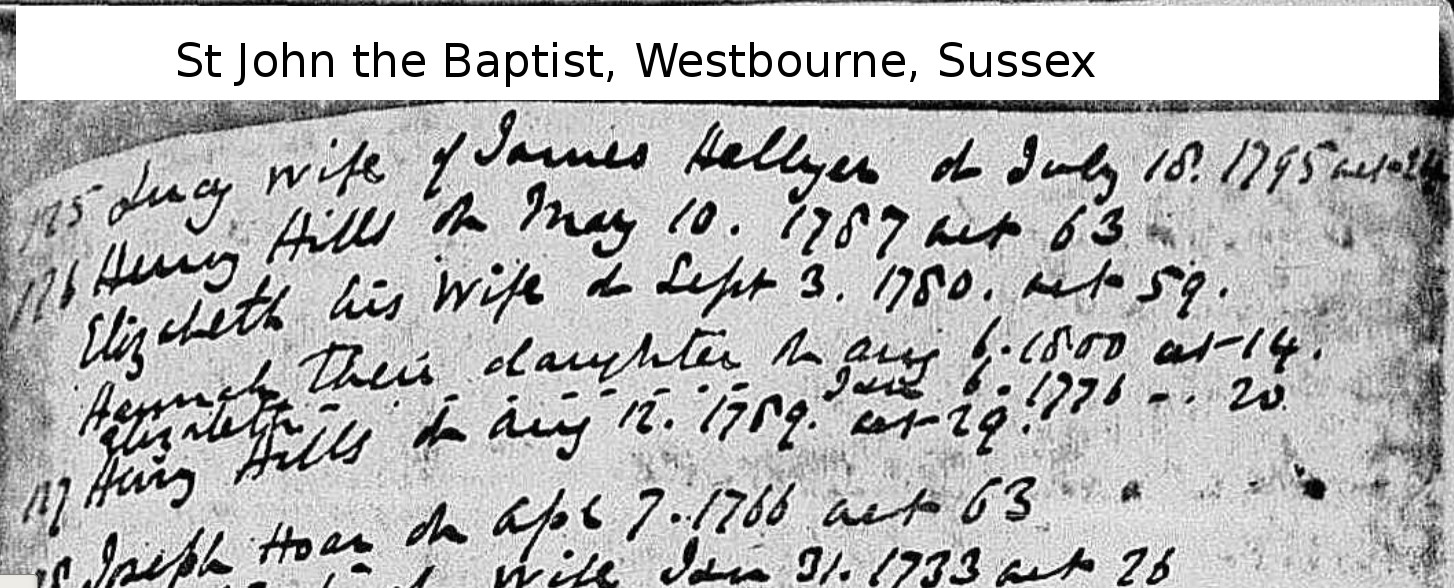 St John the Baptist, Westbourne, Sussex
175 Lucy wife of James Hellyer d July 18. 1795 aet 24
176 Henry Hills d May 10. 1787 aet 63
Elizabeth his wife d Sept 3. 1780. aet 59.
Hannah their daughter d Aug 6. 1800 aet 14.
Elizabeth - - - - - June 6. 1776 - . 20
177 Henry Hills d Aug 12. 1789. aet 29.
Joseph Hoar d Apl 7. 1766 aet 63
wife Jan 31. 1733 aet 26